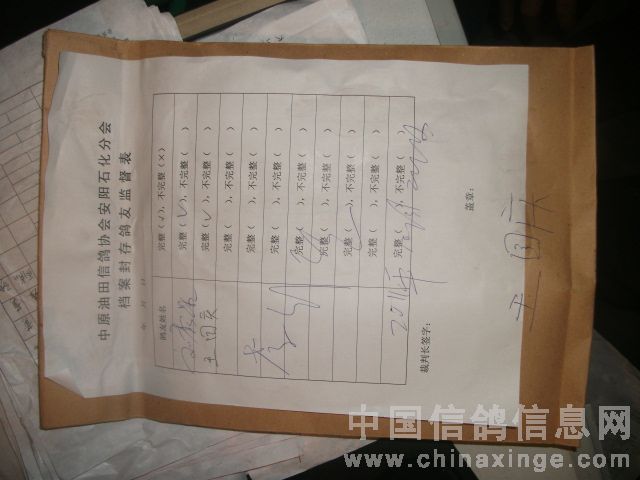 中原油田信鸽协会安阳石化分会
档案封存鸽友监督表
年 月 日
鸽友姓名 完整（√），不完整（×）
完整（√），不完整（ ）
王国庆 完整（√），不完整（ ）
完整（ ），不完整（ ）
完整（ ），不完整（ ）
完整（ ），不完整（ ）
完整（ ），不完整（ ）
完整（ ），不完整（ ）
完整（ ），不完整（ ）
完整（ ），不完整（ ）
裁判长签字： 盖章：
王国庆
中国信鸽信息网
www.chinaxinge.com